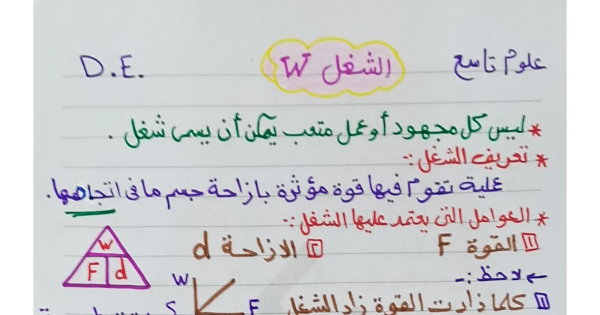 علوم تاسع الشغل W D.E.
* ليس كل مجهود أو عمل متعب يمكن أن يسمى شغل .
* تعريف الشغل :
علية تقوم فيها قوة مؤثرة بازاحة جسم ما في اتجاهها.
* العوامل التي يعتمد عليها الشغل :
1 القوة F 2 الازاحة d
W
F d
← لاحظ :-
1 كلما ذادت القوة زاد الشغل
W
F